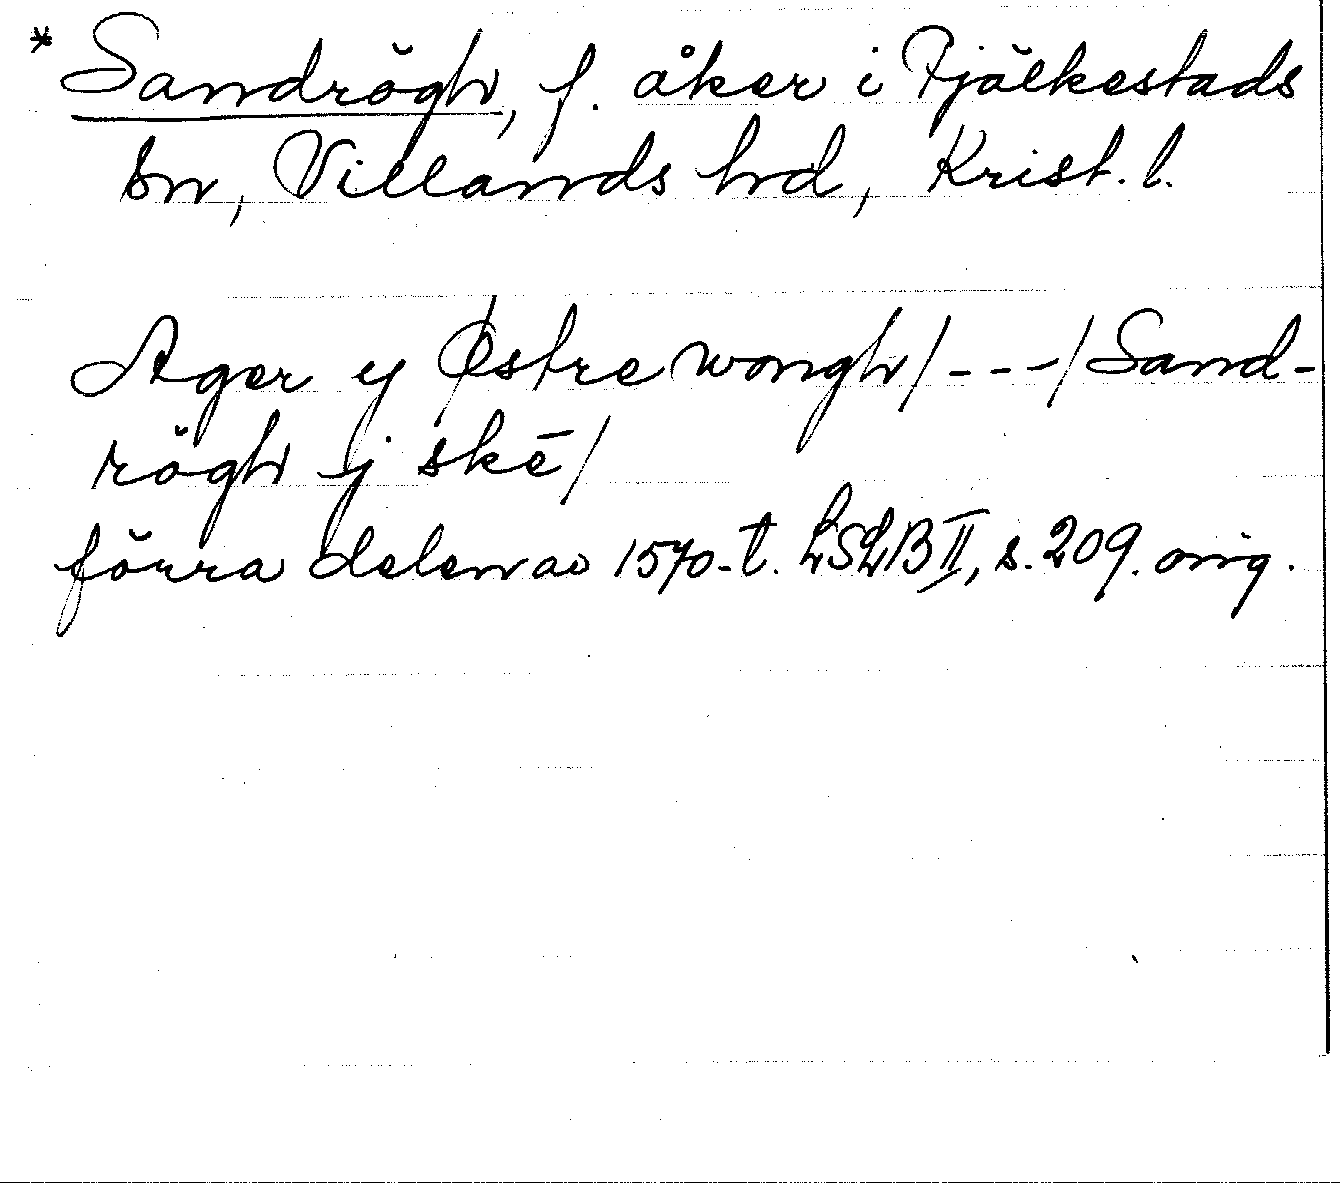 * Sandrögh, f. åker i Fjälkestads
sn, Villands hd, Krist. l.
Ager y Østre wongh/---/Sand-
rögh y skē/
förra delen av 1570-t. LSLB II, s. 209. orig.